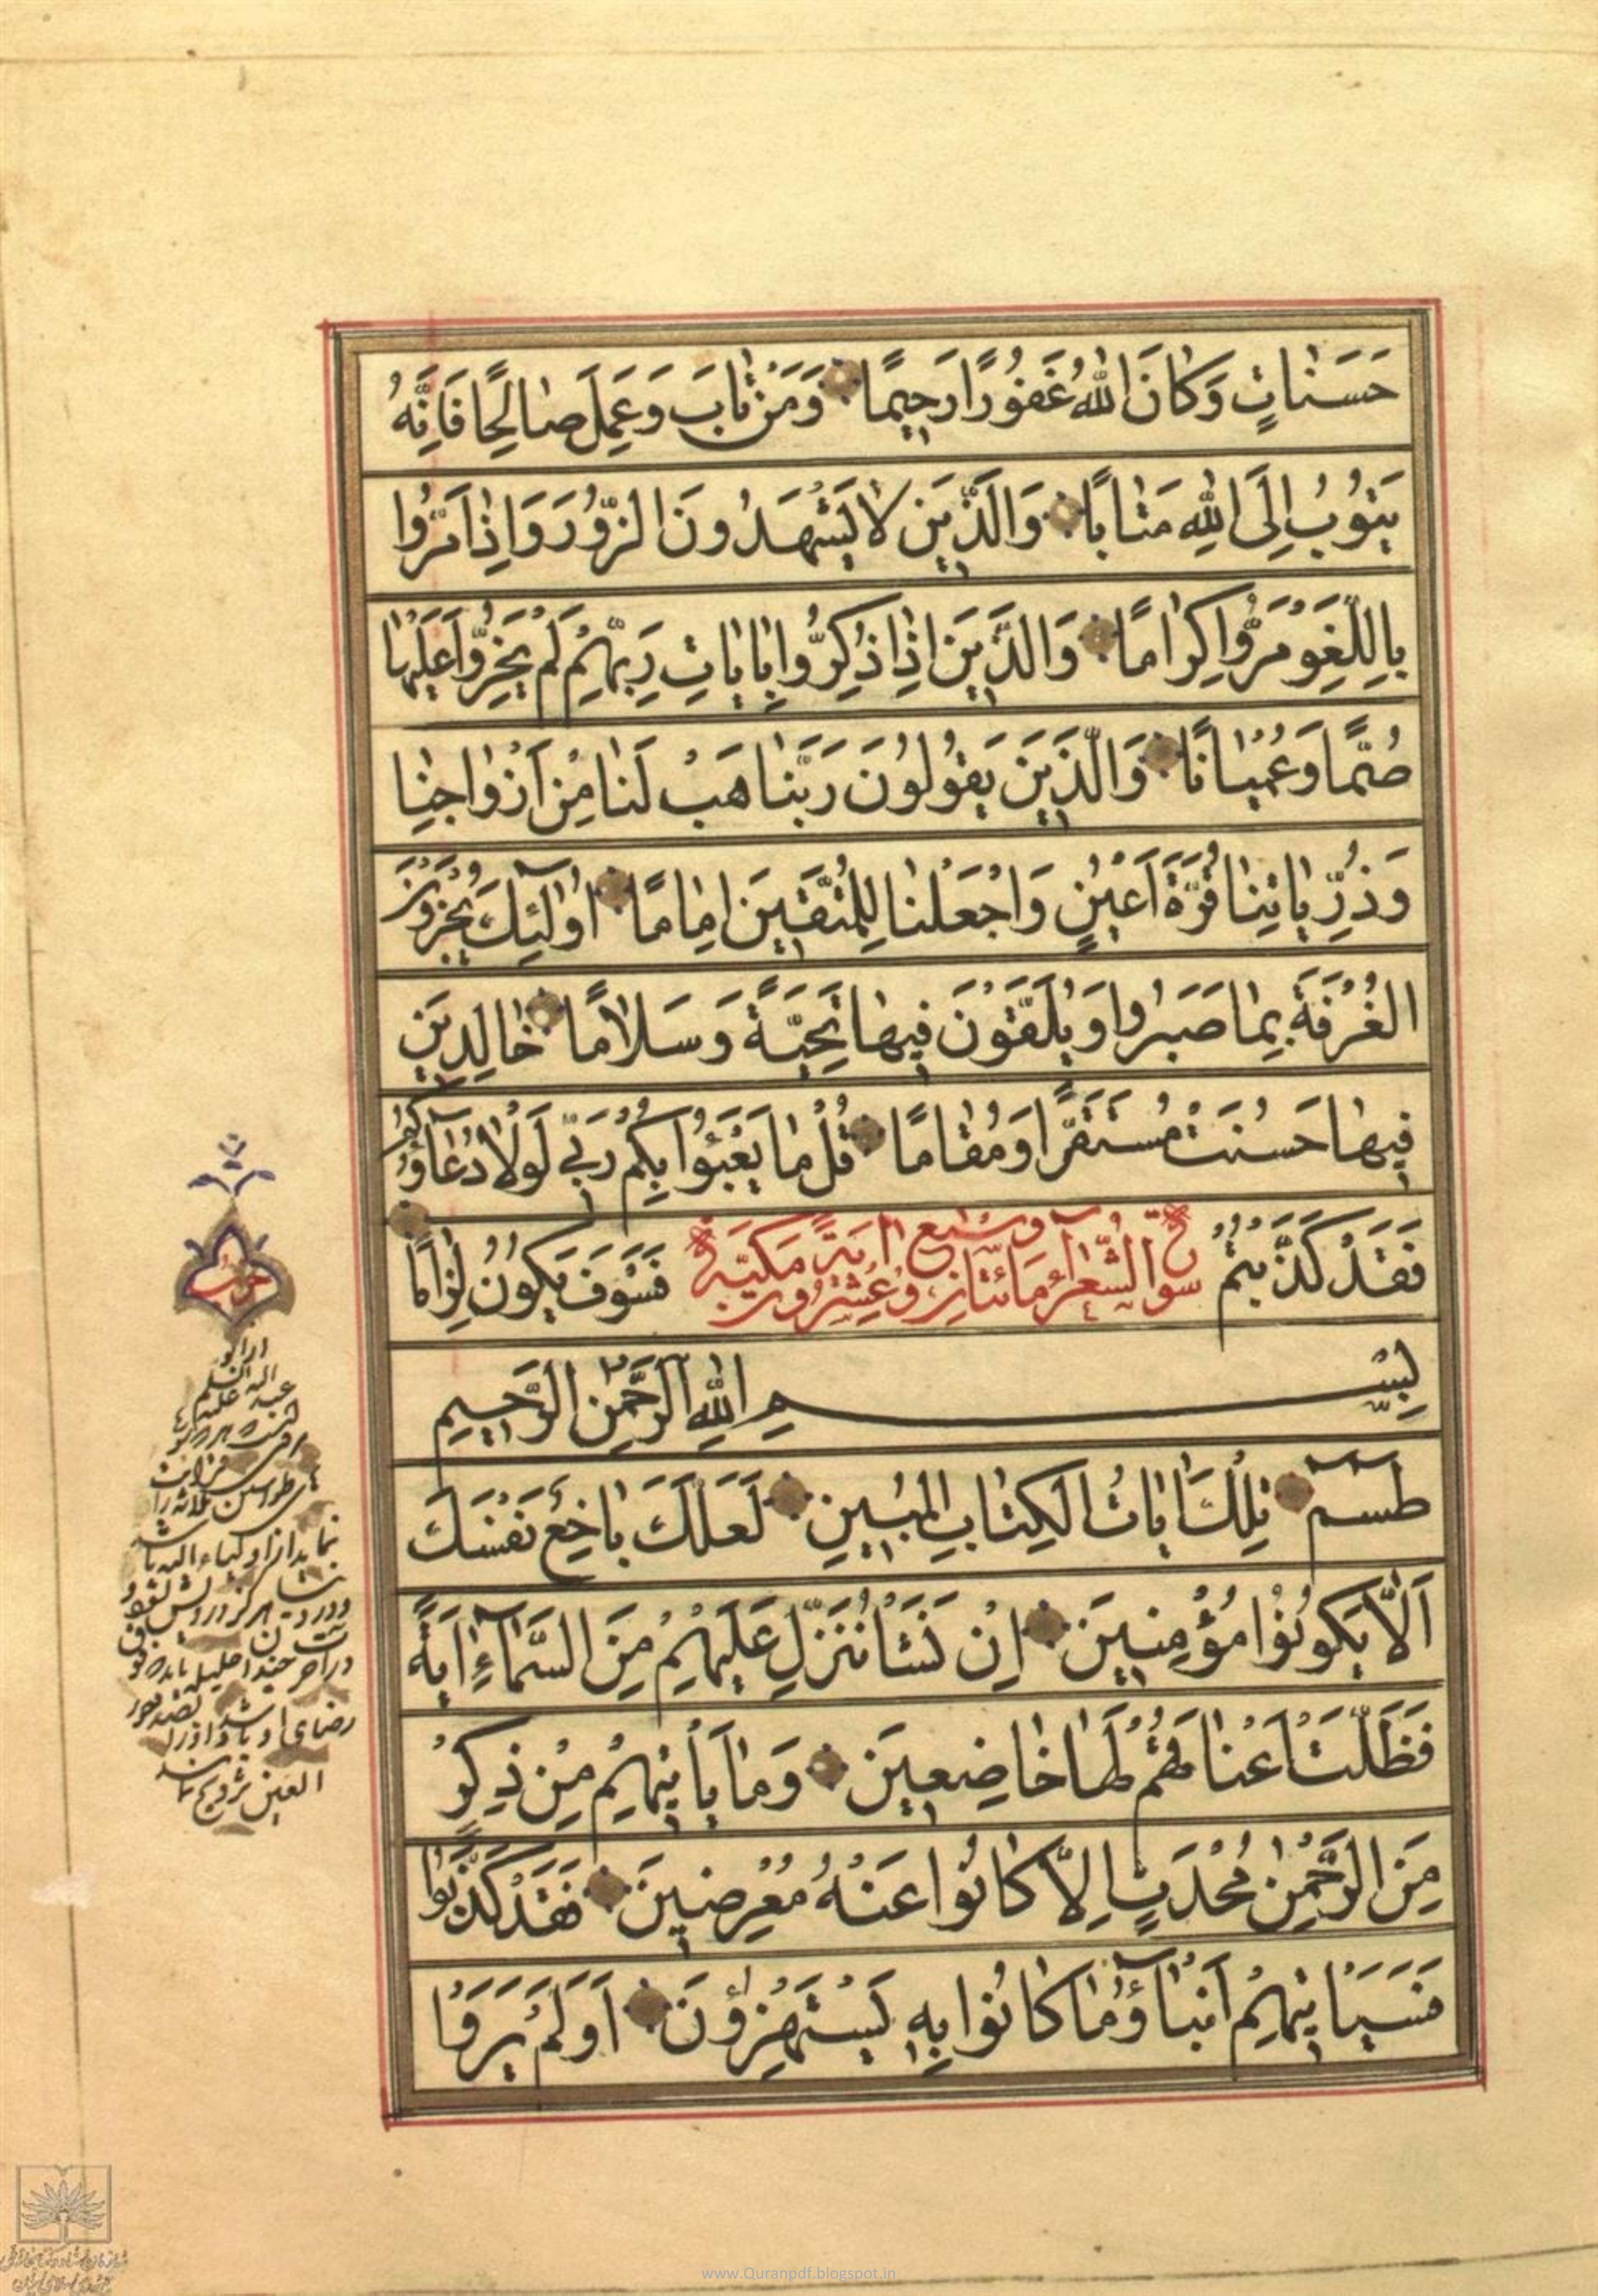 حَسَنٰاتٍ وَكٰانَ اللهُ غَفُورًا رَحِيمًا وَمَنْ تٰابَ وَعَمِلَ صٰالِحًا فَاِنَّهُ
يَتُوبُ اِلَى اللهِ مَتٰابًا وَالَّذِينَ لٰا يَشْهَدُونَ الزُّورَ وَاِذٰا مَرُّوا
بِاللَّغْوِ مَرُّوا كِرٰامًا وَالَّذِينَ اِذٰا ذُكِّرُوا بِاٰيٰاتِ رَبِّهِمْ لَمْ يَخِرُّوا عَلَيْهٰا
صُمًّا وَعُمْيٰانًا وَالَّذِينَ يَقُولُونَ رَبَّنٰا هَبْ لَنٰا مِنْ اَزْوٰاجِنٰا
وَذُرِّيّٰاتِنٰا قُرَّةَ اَعْيُنٍ وَاجْعَلْنٰا لِلْمُتَّقِينَ اِمٰامًا اُولٰٓئِكَ يُجْزَوْنَ
الْغُرْفَةَ بِمٰا صَبَرُوا وَيُلَقَّوْنَ فِيهٰا تَحِيَّةً وَسَلٰامًا خٰالِدِينَ
فِيهٰا حَسُنَتْ مُسْتَقَرًّا وَمُقٰامًا قُلْ مٰا يَعْبَؤُا بِكُمْ رَبِّي لَوْلٰا دُعٰآؤُكُمْ
فَقَدْ كَذَّبْتُمْ فَسَوْفَ يَكُونُ لِزٰامًا
سورة الشُّعَرٰآءِ مِائَتٰانِ وَعِشْرُونَ وَسَبْعُ اٰيَةً مَكِّيَّة
بِسْمِ اللهِ الرَّحْمٰنِ الرَّحِيمِ
طٰسٓمٓ تِلْكَ اٰيٰاتُ الْكِتٰابِ الْمُبِينِ لَعَلَّكَ بٰاخِعٌ نَفْسَكَ
اَلّٰا يَكُونُوا مُؤْمِنِينَ اِنْ نَشَأْ نُنَزِّلْ عَلَيْهِمْ مِنَ السَّمٰآءِ اٰيَةً
فَظَلَّتْ اَعْنٰاقُهُمْ لَهٰا خٰاضِعِينَ وَمٰا يَأْتِيهِمْ مِنْ ذِكْرٍ
مِنَ الرَّحْمٰنِ مُحْدَثٍ اِلّٰا كٰانُوا عَنْهُ مُعْرِضِينَ فَقَدْ كَذَّبُوا
فَسَيَأْتِيهِمْ اَنْبٰآؤُا مٰا كٰانُوا بِهِ يَسْتَهْزِؤُنَ اَوَلَمْ يَرَوْا
حزب
www.Quranpdf.blogspot.in